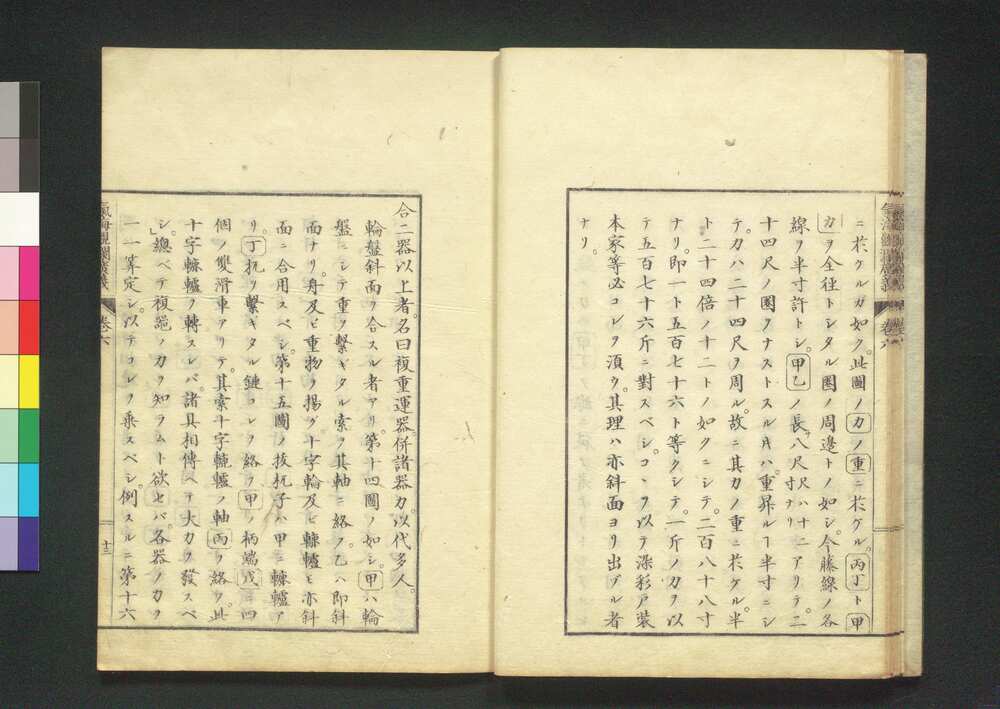 ニ於ケルガ如ク。此圖ノ力ノ重ニ於ケル。丙丁ト甲
力ヲ全往トシタル圏ノ周邊トノ如シ。今藤線ノ各
線ヲ半寸許トシ。甲乙ノ長サ八尺 八尺ハ十二寸ナリ アリテ。二
十四尺ノ圏ヲナストスル片ハ。重昇ルヿ半寸ニシ
テ。力ハ二十四尺ヲ周ル。故ニ其力ノ重ニ於ケル。半
ト二十四倍ノ十二トノ如クニシテ。二百八十八寸
ナリ。即一ト五百七十六ト等クシテ。一斤ノ力ヲ以
テ五百七十六斤ニ對スベシ。コヽヲ以テ染彩戸裝
本家等必コレヲ須ウ。其理ハ亦斜面ヨリ出ヅル者
ナリ。
合二器以上者。名曰複重運器併諸器力。以代多人。
輪盤斜面ヲ合スル者アリ。第十四圖ノ如シ。甲ハ輪
盤ニシテ重ヲ繫ギタル索ヲ其軸ニ絡フ。乙ハ即斜
面ナリ。舟及ビ重物ヲ揚グ。十字輪及ビ轆轤モ亦斜
面ニ合用スベシ。第十五圖ノ拔杭子ハ甲ニ轆轤ア
リ。丁杭リ繫ギタル鏈コレヲ絡フ。甲ノ柄端戊ニ四
個ノ雙滑車アリテ。其索十字轆轤ノ軸丙ヲ絡フ。此
十字轆轤ヲ轉スレバ。諸具相傳ヘテ大力ヲ發スベ
シ。總ベテ複器ノ力ヲ知ラムト欲セバ。各器ノ力ヲ
一一算定シ。以テコレヲ乘スベシ。例スルニ第十六
氣海觀瀾廣義 卷六
十三